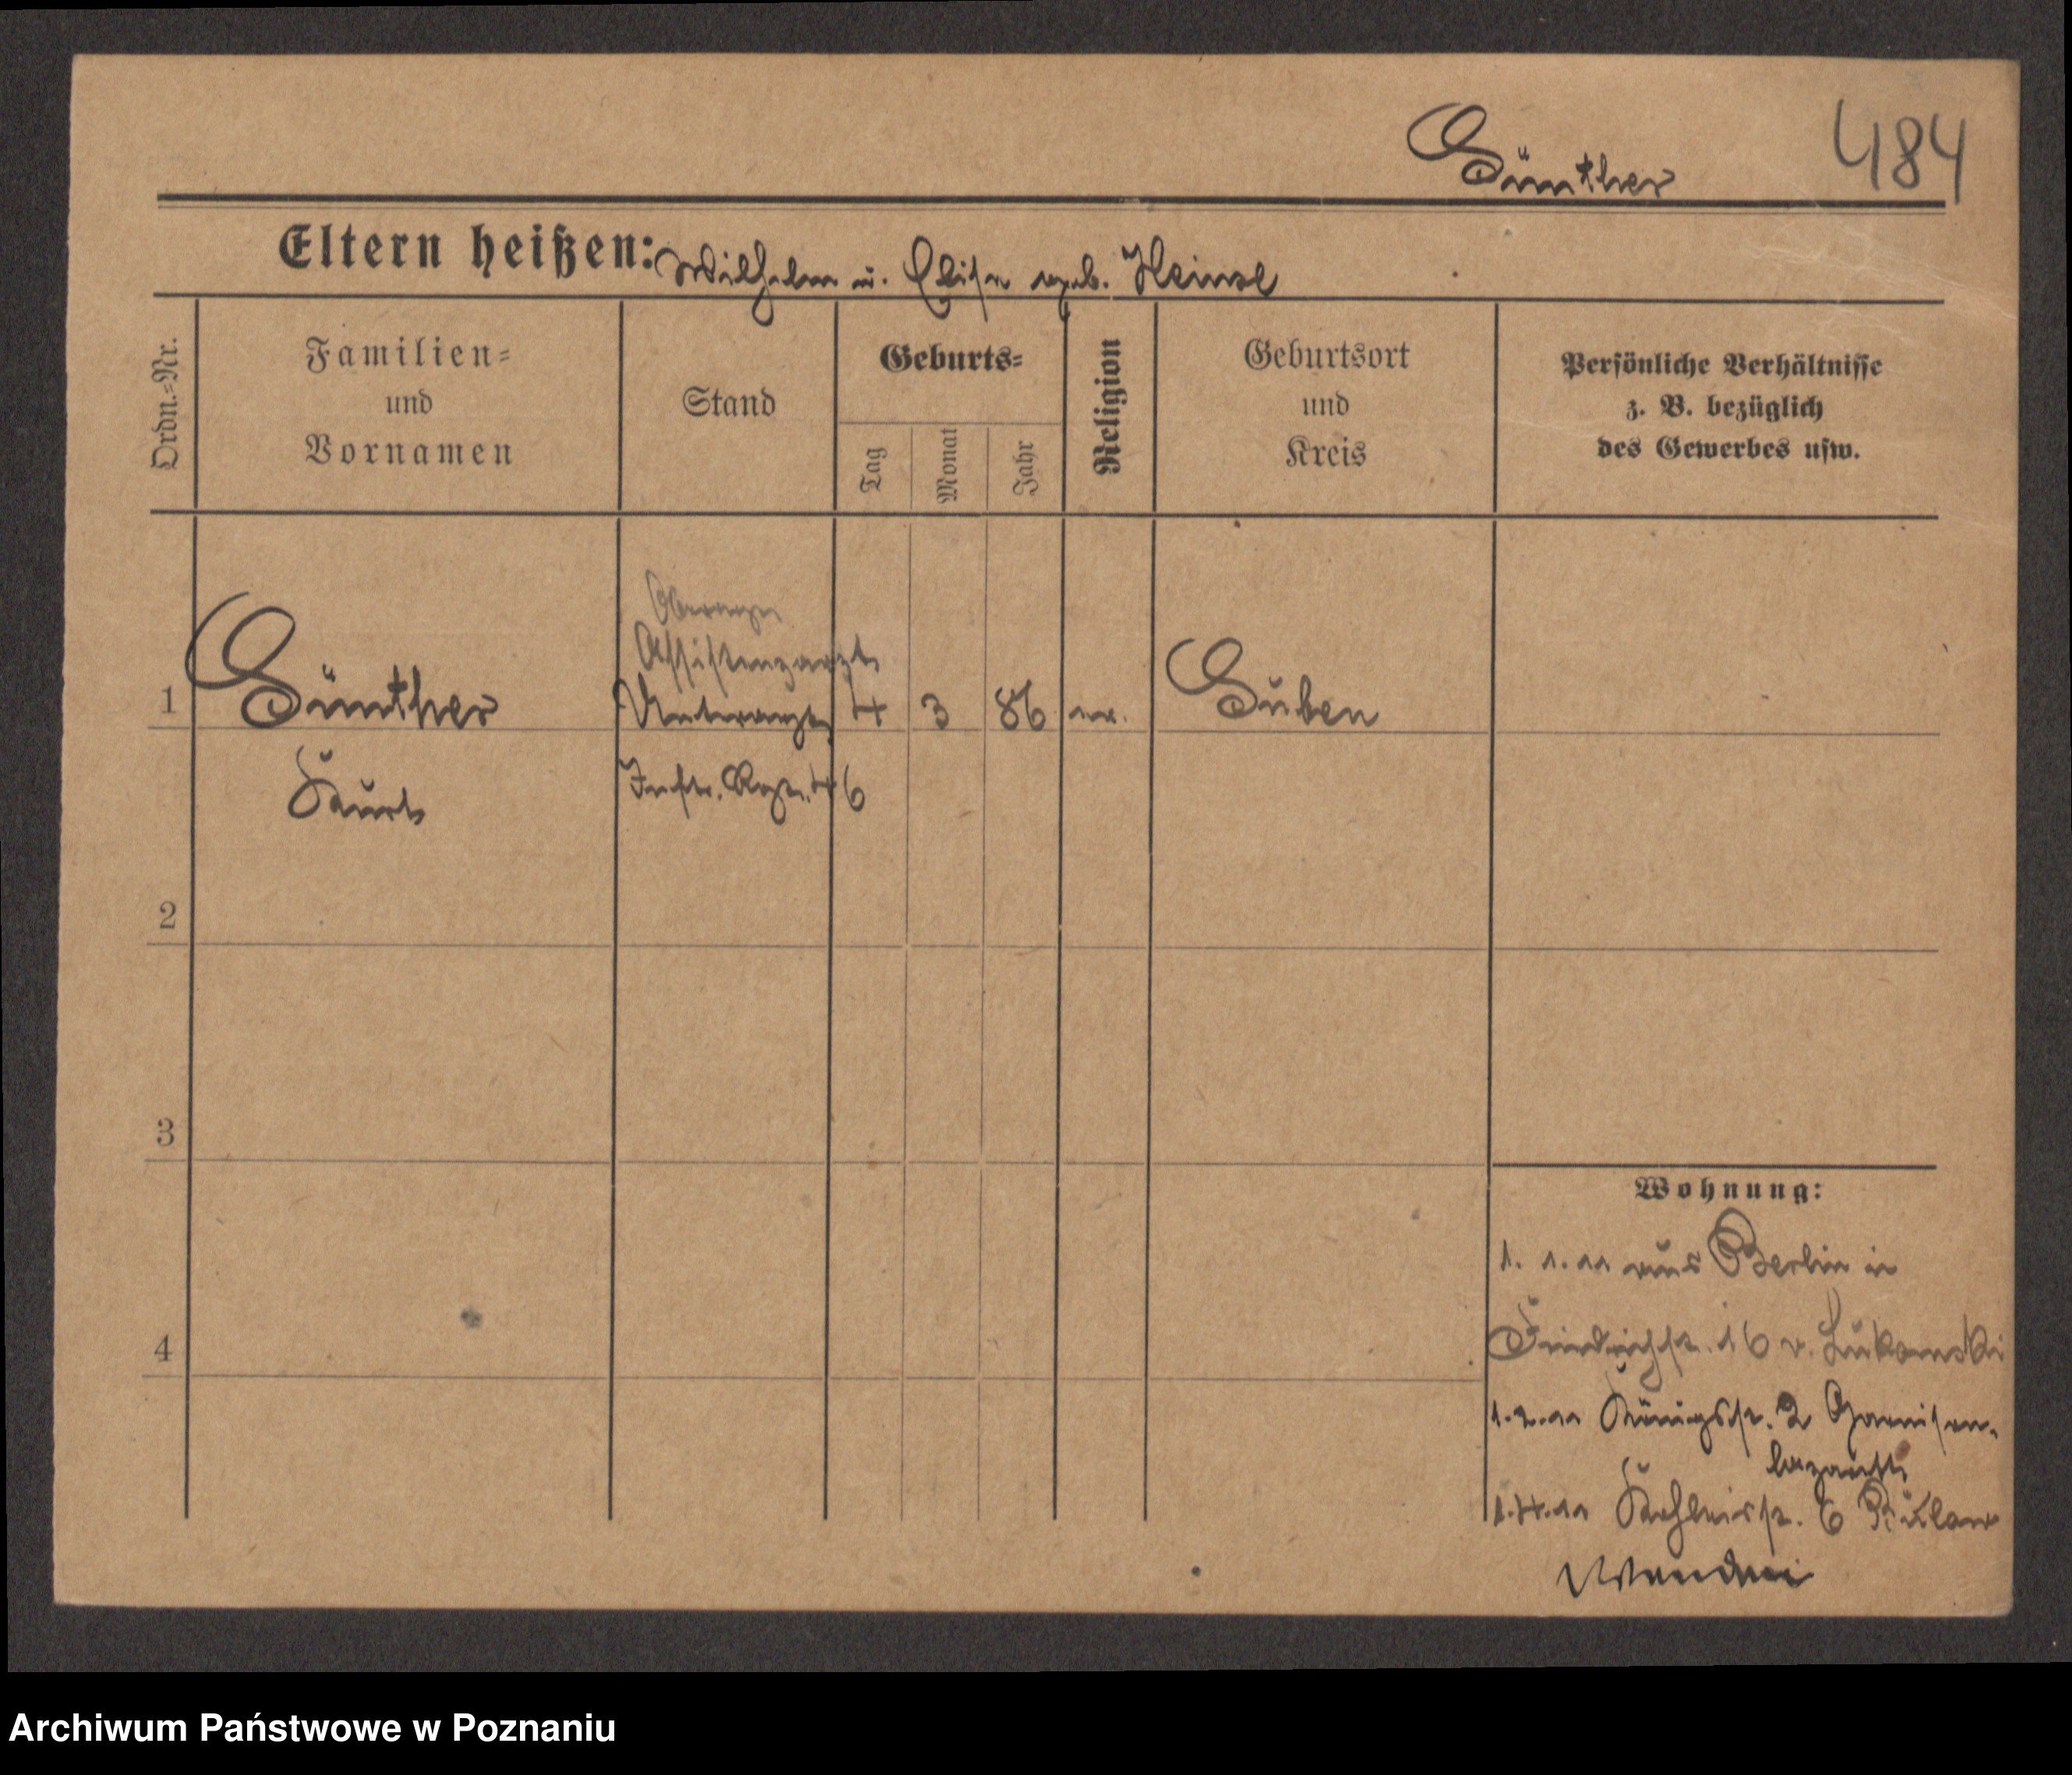 Günther 484
Eltern heißen: Wilhelm u. Elise geb. Heinze
Ordn.-Nr.
Familien-
und
Vornamen
Stand
Geburts-
Tag
Monat
Jahr
Religion
Geburtsort
und
Kreis
Persönliche Verhältnisse
z. B. bezüglich
des Gewerbes usw.
Oberarzt
Assistenzarzt
1 Günther Unterarzt 4 3 86 ev. Guben
Kurt Inftr. Rgt. 46
2
3
4
Wohnung:
1. 1. 11 aus Berlin in
Friedrichstr. 16 v. Lukomski
1. 2. 11 Königsstr. 2 Garnison-
lazarett
1. 4. 11 Kohleisstr. 6
Archiwum Państwowe w Poznaniu